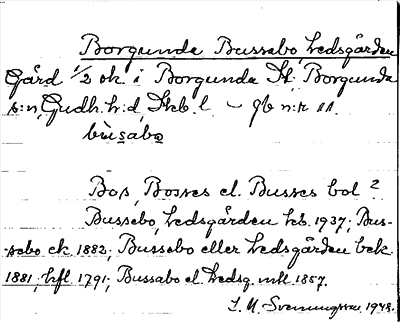 Borgunda Bussabo, Ledsgården
Gård 1/2 ok. i Borgunda St. Borgunda
s:n, Gudh. h:d, Skb. l – Jb n:r 11.
bùsabo
Bos, Bosses el. Busses bol ?
Bussebo, Ledsgården hb. 1937; Bus-
sebo ek 1882; Bussebo eller Ledsgården bek.
1881; hfl 1791; Bussabo el. Ledsg. mtl. 1857.
Svenungsson 1948.